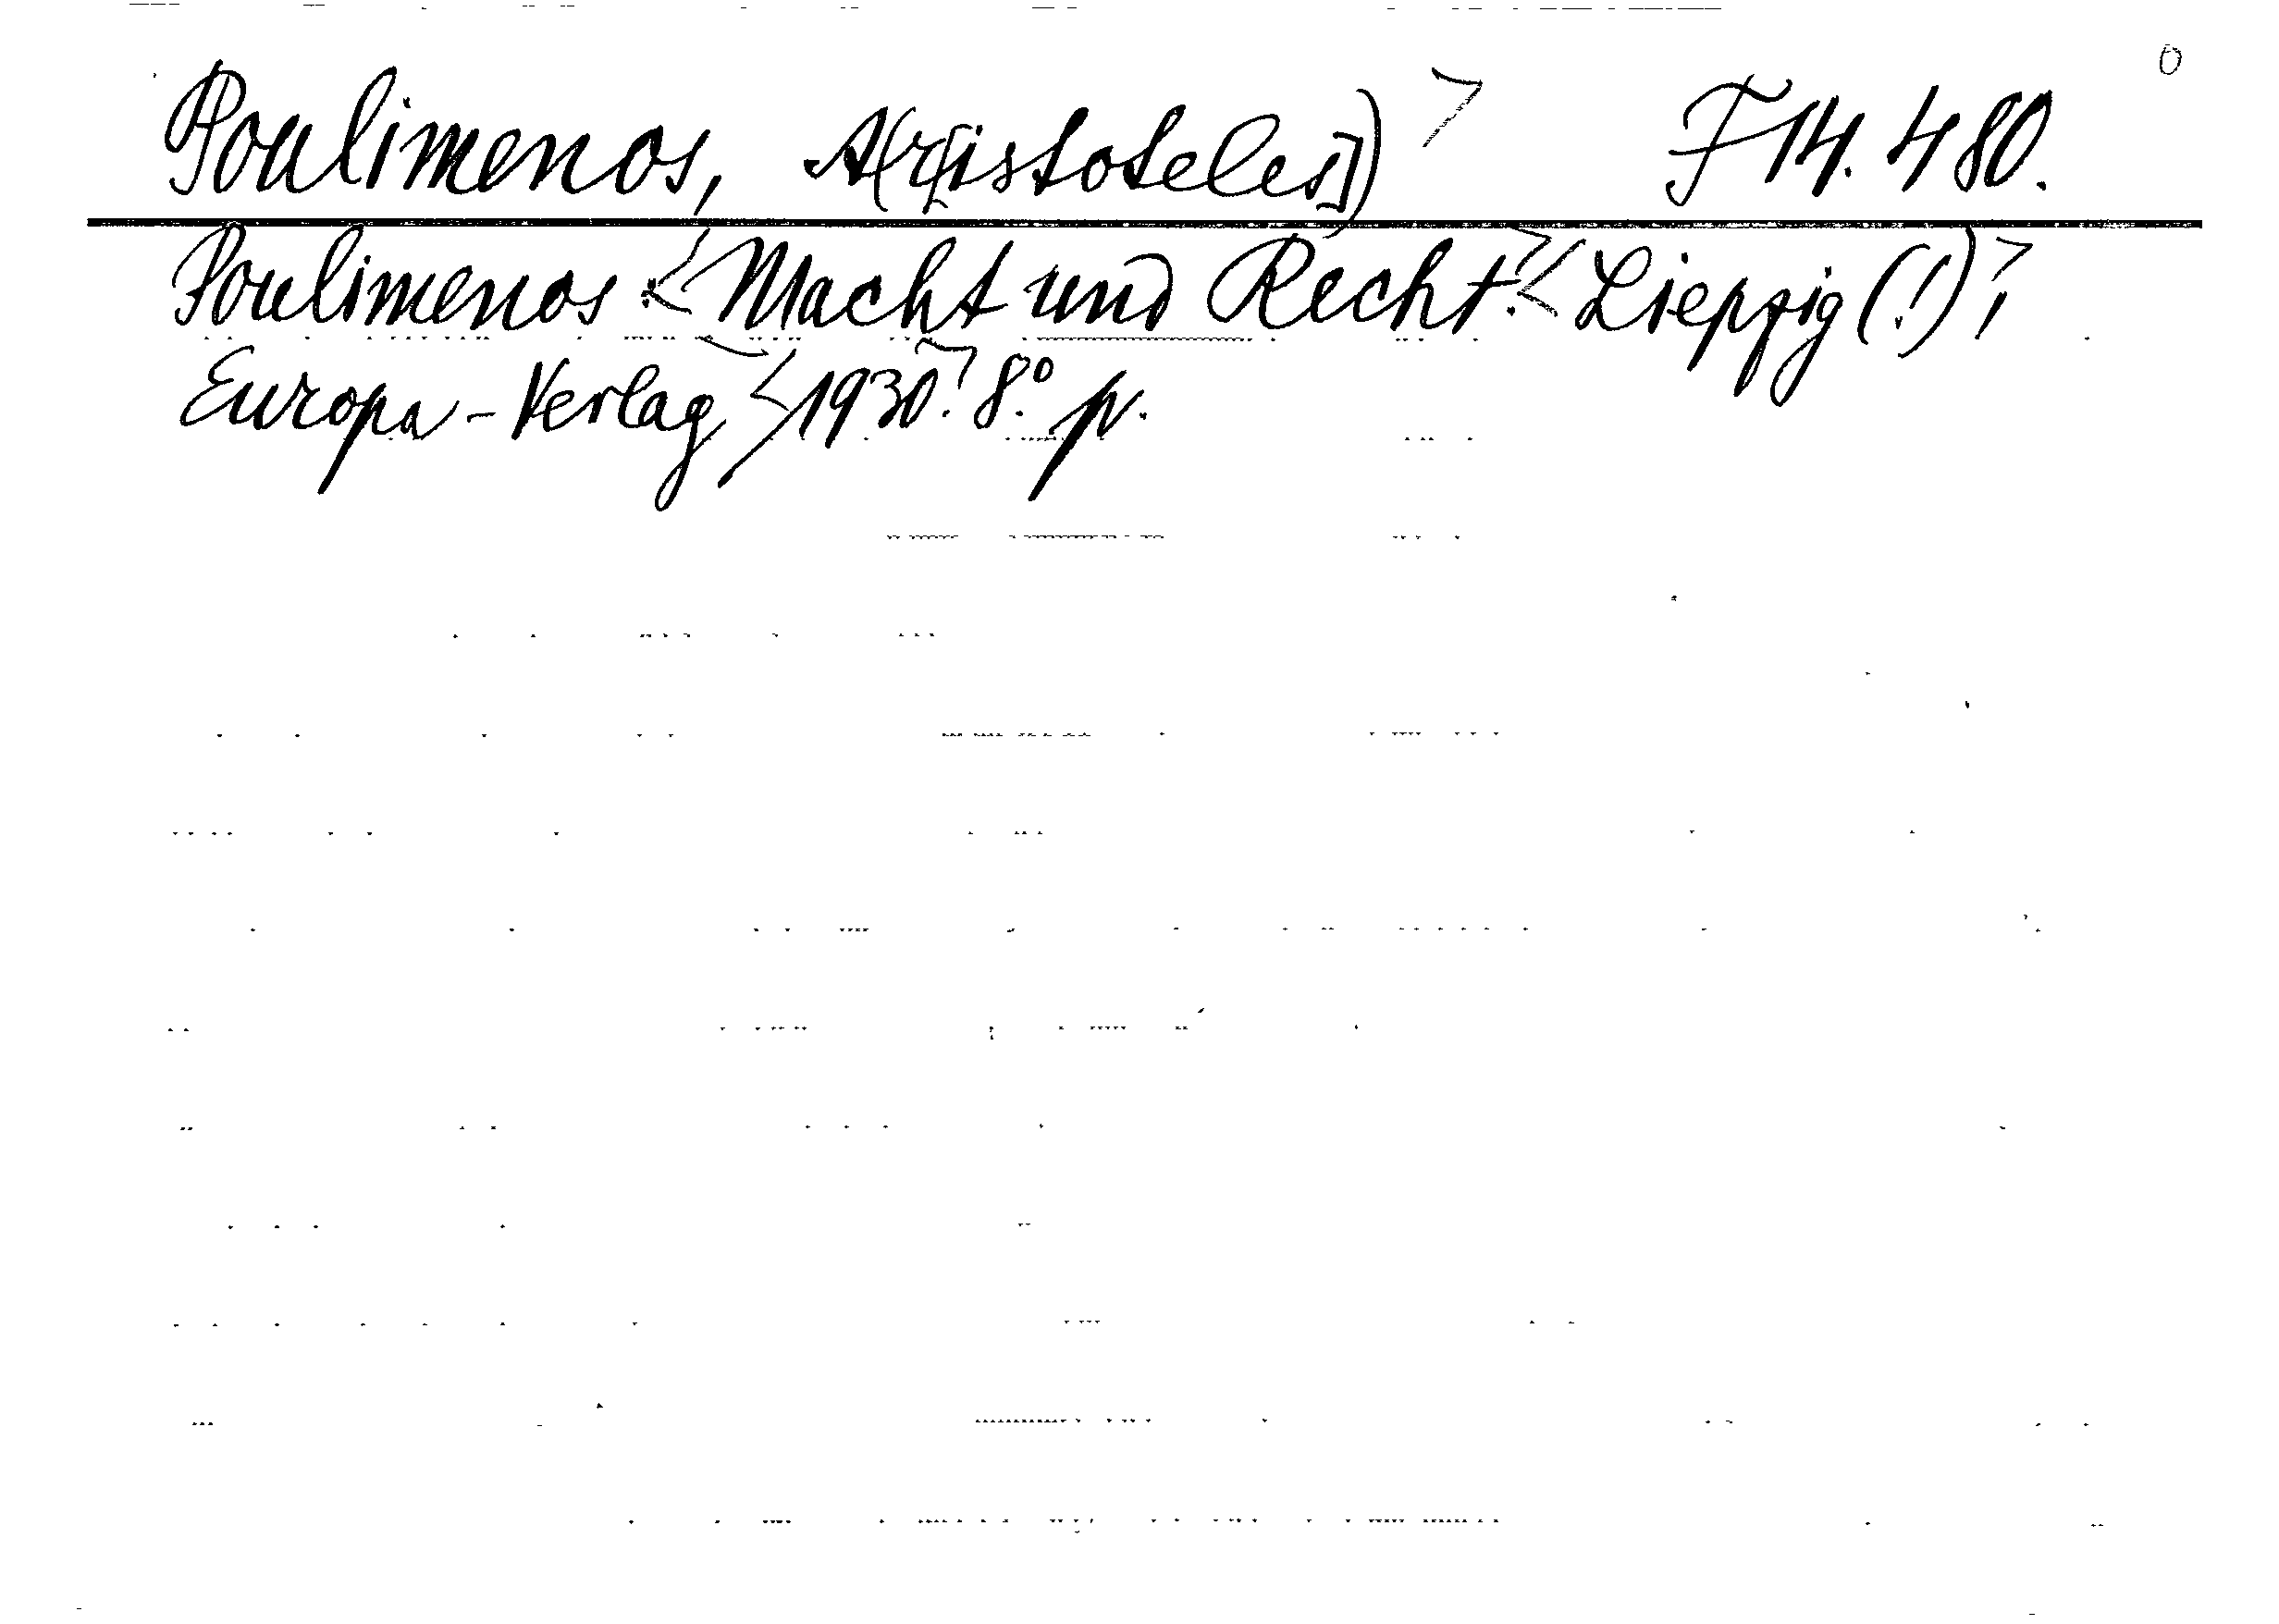 0
Poulimenos, A(r[istoteles]) > F 14.480.
Poulimenos: < Macht und Recht. > < Liepzig (!), >
Europa-Verlag, < 1930. > 8.° p.